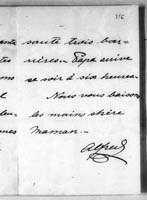 saute trois bar-
rières. Papa arrive
ce soir à six heures.
Nous vous baisons
les mains chère
Maman.
Alfred